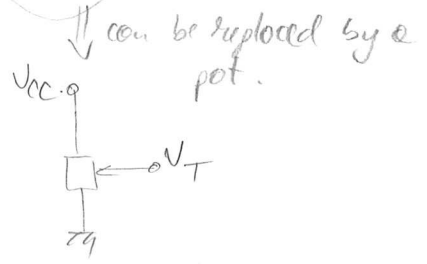 can be replaced by a
pot.
VCC
VT